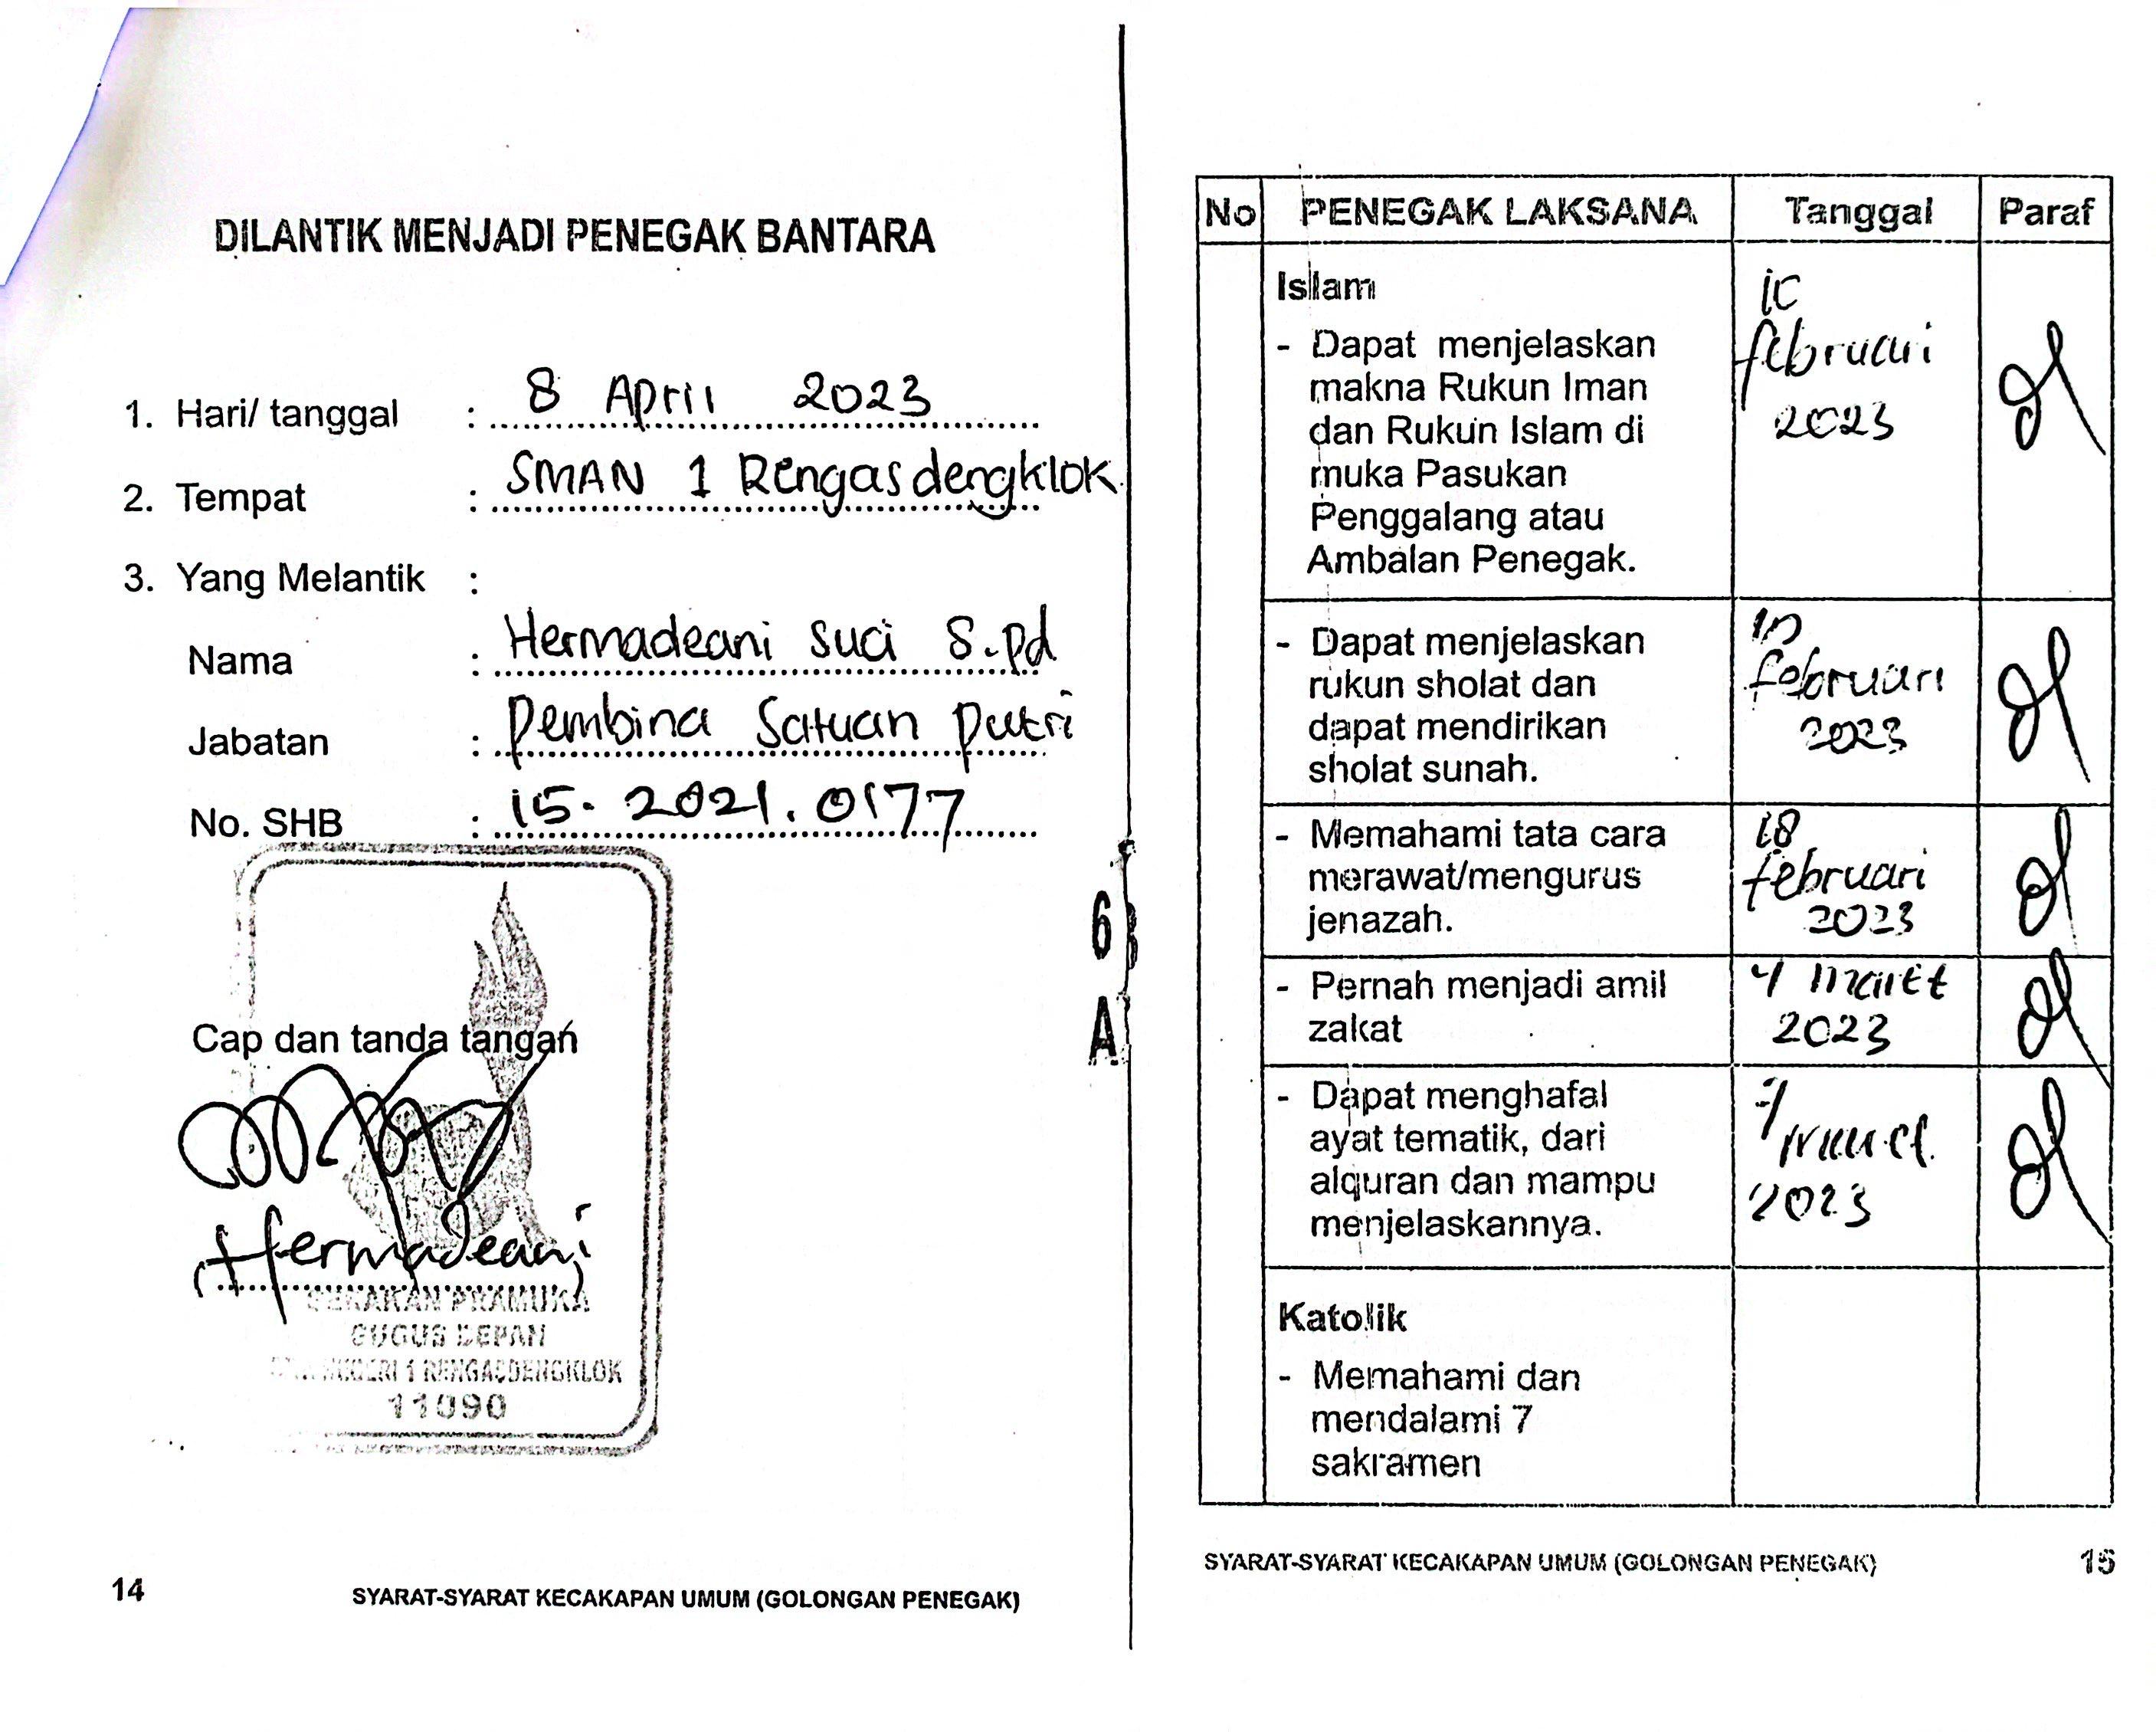 DILANTIK MENJADI PENEGAK BANTARA
1. Hari/ tanggal : 8 April 2023
2. Tempat : SMAN 1 Rengasdengklok
3. Yang Melantik :
Nama : Hermadeani Suci S.Pd
Jabatan : Pembina Satuan Putri
No. SHB : 15. 2021. 0177
Cap dan tanda tangan
(Hermadeani)
GERAKAN PRAMUKA
GUGUS DEPAN
NEGERI 1 RENGASDENGKLOK
11090
14
SYARAT-SYARAT KECAKAPAN UMUM (GOLONGAN PENEGAK)
6
A
No PENEGAK LAKSANA Tanggal Paraf
Islam
- Dapat menjelaskan
makna Rukun Iman
dan Rukun Islam di
muka Pasukan
Penggalang atau
Ambalan Penegak.
februari
2023
- Dapat menjelaskan
rukun sholat dan
dapat mendirikan
sholat sunah.
februari
2023
- Memahami tata cara
merawat/mengurus
jenazah.
18
februari
2023
- Pernah menjadi amil
zakat
4 maret
2023
- Dapat menghafal
ayat tematik, dari
alquran dan mampu
menjelaskannya.
7
maret
2023
Katolik
- Memahami dan
mendalami 7
sakramen
SYARAT-SYARAT KECAKAPAN UMUM (GOLONGAN PENEGAK)
15